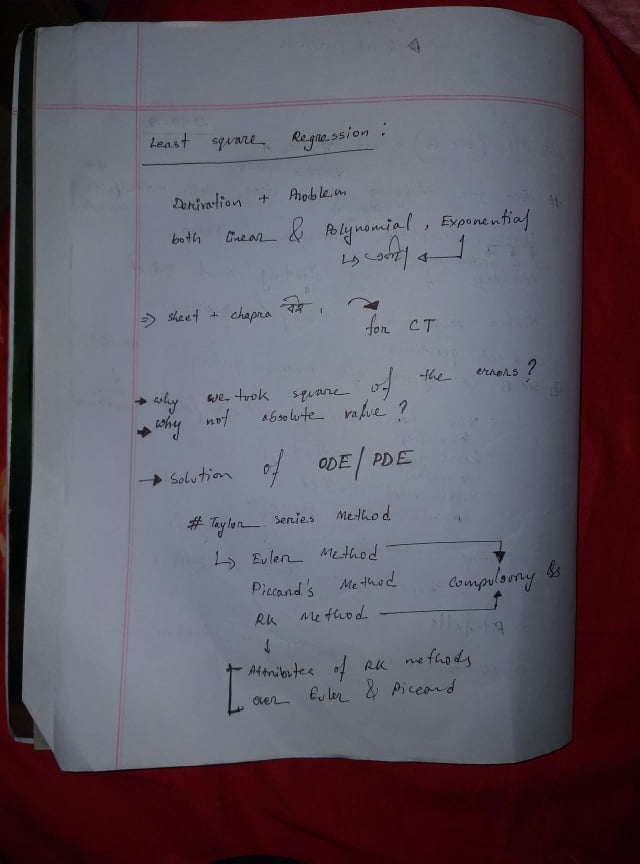 Least square Regression :
Derivation + Problem
both linear & Polynomial , Exponential
⇒ sheet + chapra বই ,
for CT
→ why we took square of the errors ?
→ why not absolute value ?
→ Solution of ODE / PDE
# Taylor series Method
↳ Euler Method
Piccard's Method Compulsory
RK Method
↓
Attributes of RK methods
over Euler & Piccard